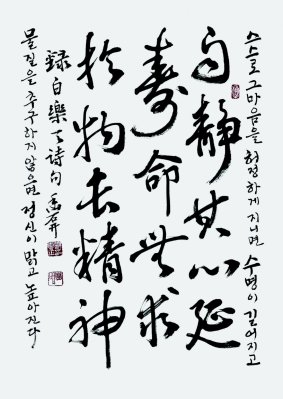 스스로 그 마음을 허정하게 지니면 수명이 길어지고
自靜其心延
壽命無求
於物長精神
錄白樂天詩句
물질을 추구하지 않으면 정신이 맑고 높아진다